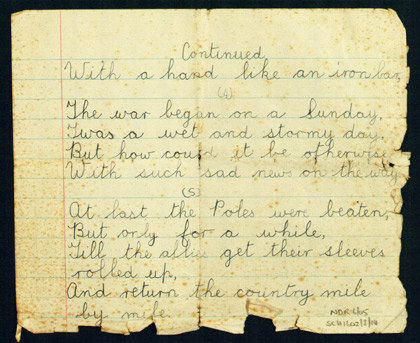 Continued
With a hand like an iron bar,
(4)
The war began on a Sunday,
Twas a wet and stormy day,
But how could it be otherwise
With such sad news on the way
(5)
At last the Poles were beaten,
But only for a while,
Till the allies get their sleeves
rolled up,
And return the country mile
by mile.